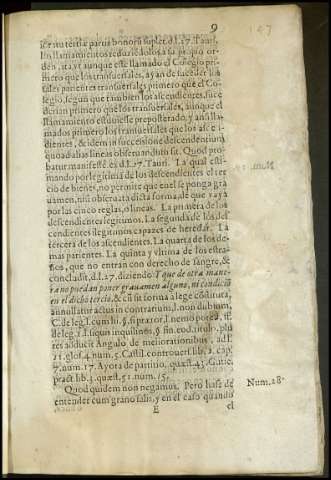 9
tér au tertia parua bonorū suplet.d.l.17.Tauri,
los llamamientos reduziendolos a su propio or-
den, ita vt aunque esté llamado el Colegio pri-
mero que los transuersales, ayan de suceder los
tales parientes transuersales primero que el Co-
legio, segun que tambien los ascendientes, suce
derian primero que los transuersales, aunque el
llamamiento estuuiesse prepostero, y anu lla-
mados primero los transuersales que los asce-
dientes, & idem in successione descendentium
quoad alias lineas obseruandum sit. Quod pro-
batur manifestè ex d.l.27. Tauri. La qual esti-
mando por legitima de los descendientes el ter
cio de bienes, no permite que en el se ponga gra
uamen, nisi obseruata dicta forma, de que vaya
por las cinco reglas, o lineas. La primera de los
descendientes legitimos. La segunda de los des
cendientes ilegitimos capazes de heredar. La
tercera de los ascendientes. La quarta de los de-
mas parientes. La quinta y vltima de los estra-
ños, que no entran con derecho de sangre, &
concludit, d.l.27. diziendo Y que de otra mane-
ra no puedan poner grauamen alguno, ni condició
en el dicho tercio, & cū sit forma à lege cōstituta,
annullatur actus in contrarium, l. non dubium,
C. de leg. l. cum hi. §. si prætor, l. nemo potest, ff.
de leg. 1. l. siquis inquilinos, §. fin. eod. titulo, plu
res adducit Angulo de meliorationibus, ad l.
11. glos. 4. num. 5. Castil. controuers. lib. 2. cap.
7. num. 17. Ayora de partitio, quæst. 43. Gutie.
pract. lib. 3. quæst. 51. num. 15.
Quod quidem non negamus. Pero hase de
entender cum grano salis, y en el caso quando
Num. 28
E
el